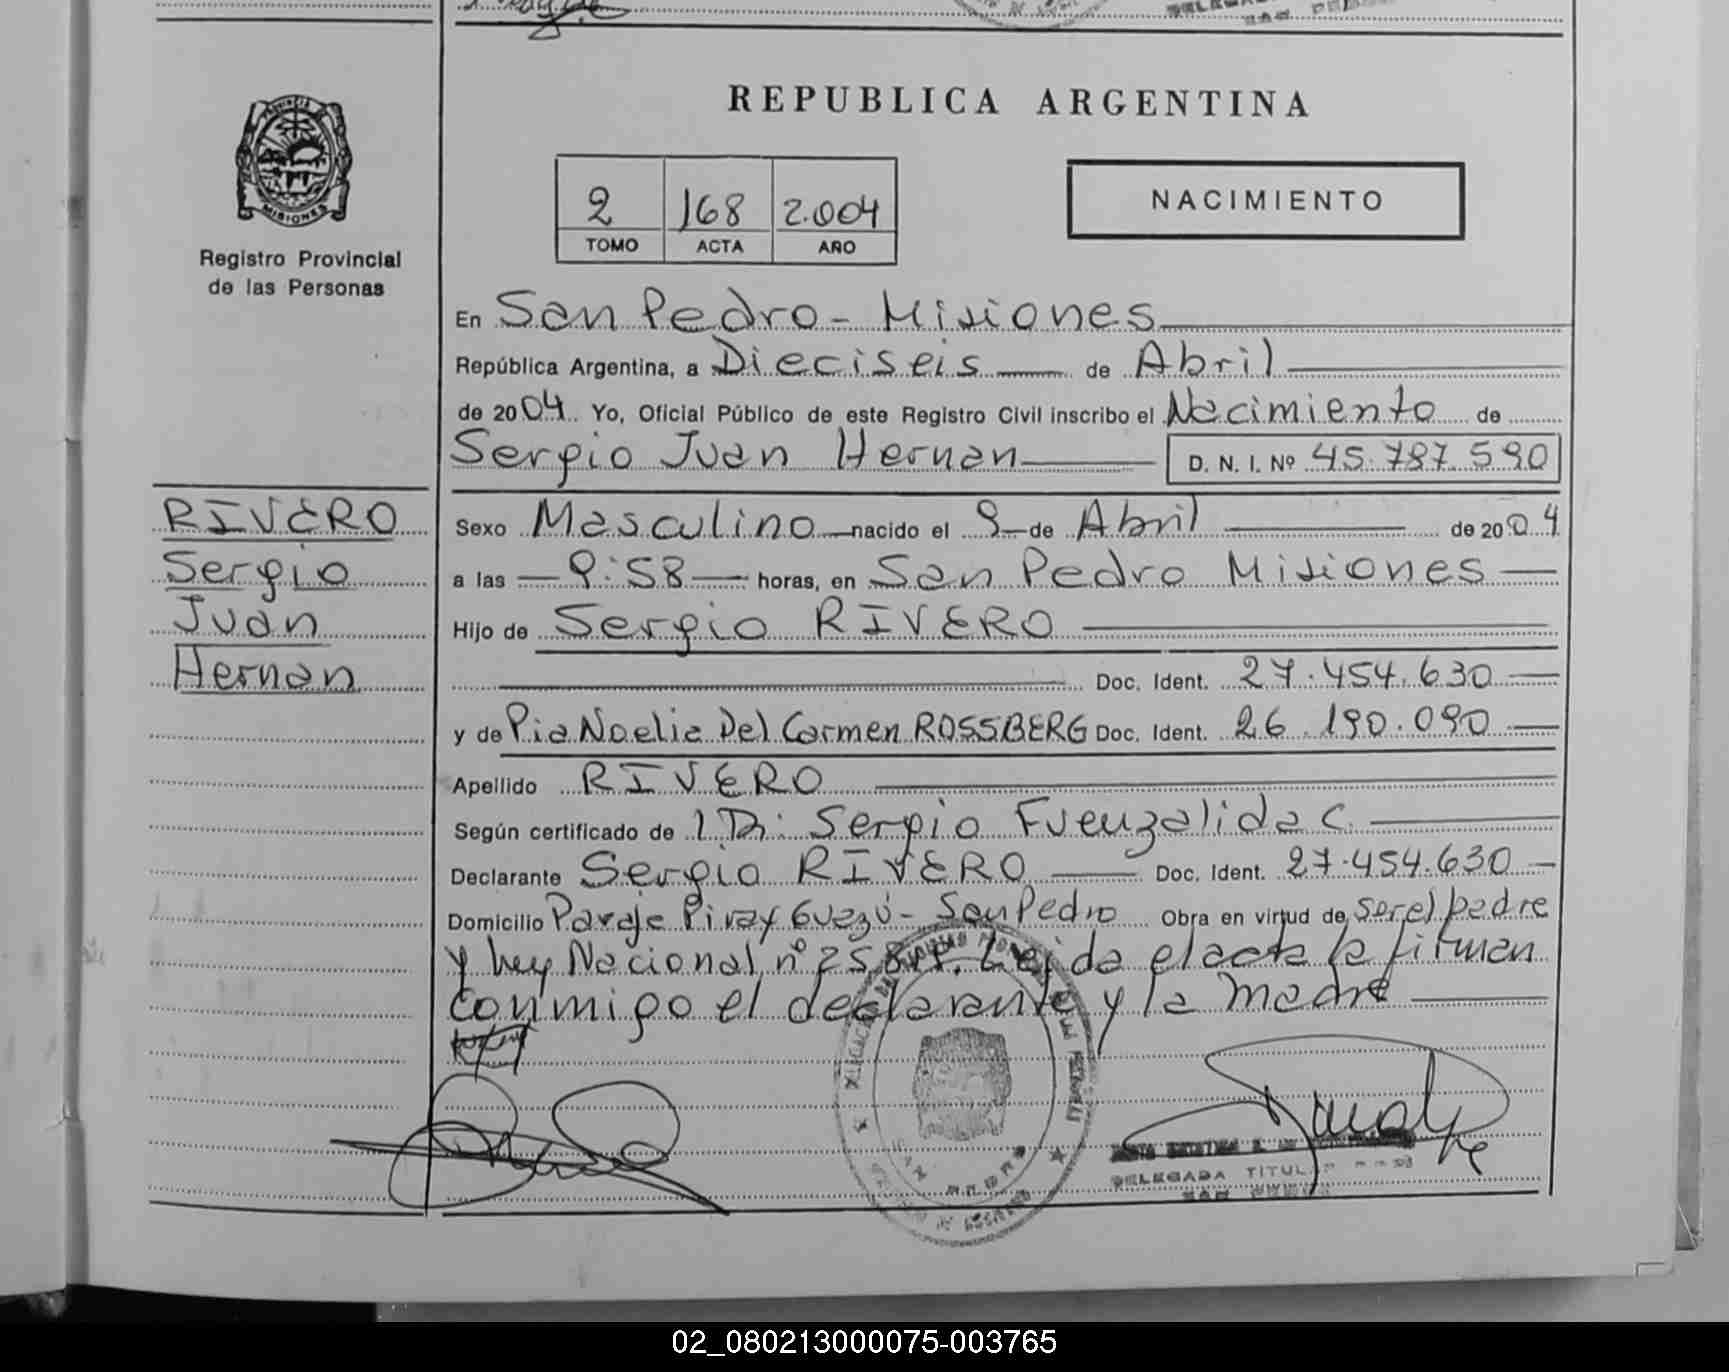 REPUBLICA ARGENTINA
PROVINCIA
MISIONES
Registro Provincial
de las Personas
2 168 2.004
TOMO ACTA AÑO
NACIMIENTO
En San Pedro - Misiones
República Argentina, a Dieciseis de Abril
de 2004 Yo, Oficial Público de este Registro Civil inscribo el Nacimiento de
Sergio Juan Hernan D. N. I. Nº 45.787.590
RIVERO
Sergio
Juan
Hernan
Sexo Masculino nacido el 9 de Abril de 2004
a las 9:58 horas, en San Pedro Misiones
Hijo de Sergio RIVERO
Doc. Ident. 27.454.630
y de Pia Noelia Del Carmen ROSSBERG Doc. Ident. 26.190.090
Apellido RIVERO
Según certificado de Dr. Sergio Fuenzalida C.
Declarante Sergio RIVERO Doc. Ident. 27.454.630
Domicilio Paraje Piray Guazú - San Pedro Obra en virtud de ser el padre
y Ley Nacional nº Leída el acta la firman
conmigo el declarante y la madre
DELEGADA TITULAR
SAN PEDRO
02_080213000075-003765